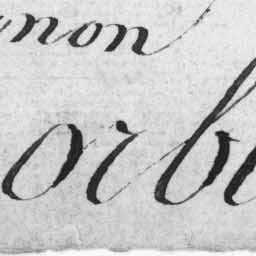 mon
orb